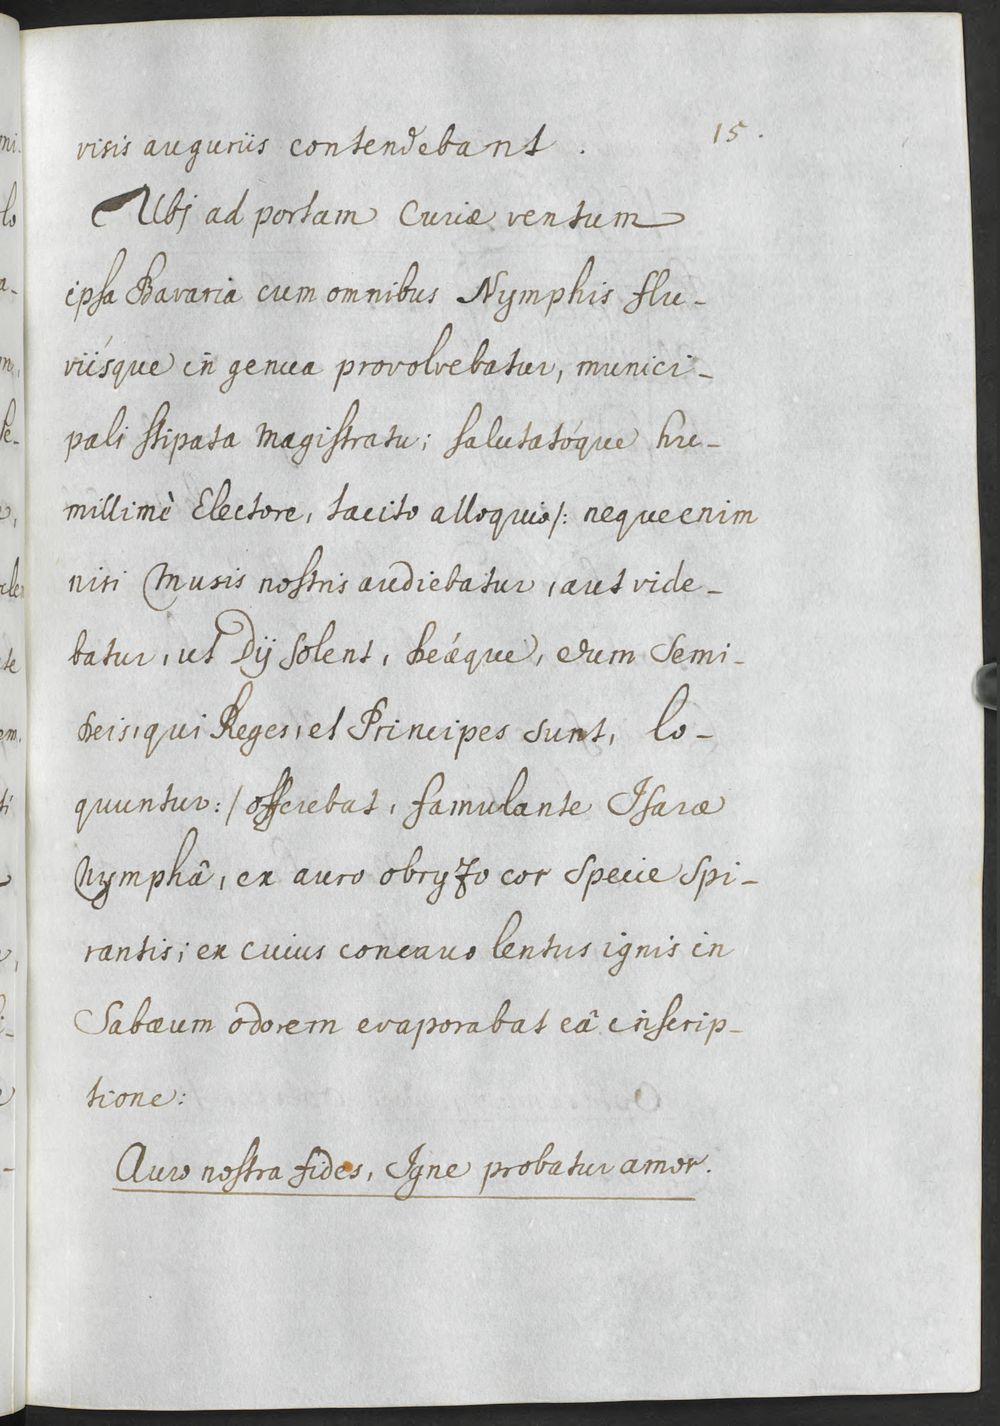 15.
visis auguriis contendebant.
Ubj ad portam Curiæ ventum
ipsa Bavaria cum omnibus Nymphis flu-
viísque in genua provolvebatur, munici-
pali stipata Magistratu; salutatóque hu-
millimè Electore, tacito alloquio /: neque enim
nisi Musis nostris audiebatur, aut vide-
batur, ut Dij solent, Deǽque, dum Semi-
deis, qui Reges, et Principes sunt, lo-
quuntur: / offerebat, famulante Isaræ
Nymphâ, ex auro obryzo cor specie spi-
rantis; ex cuius concavo lentus ignis in
Sabæum odorem evaporabat eâ inscrip-
tione:
Auro nostra fides, Igne probatur amor.